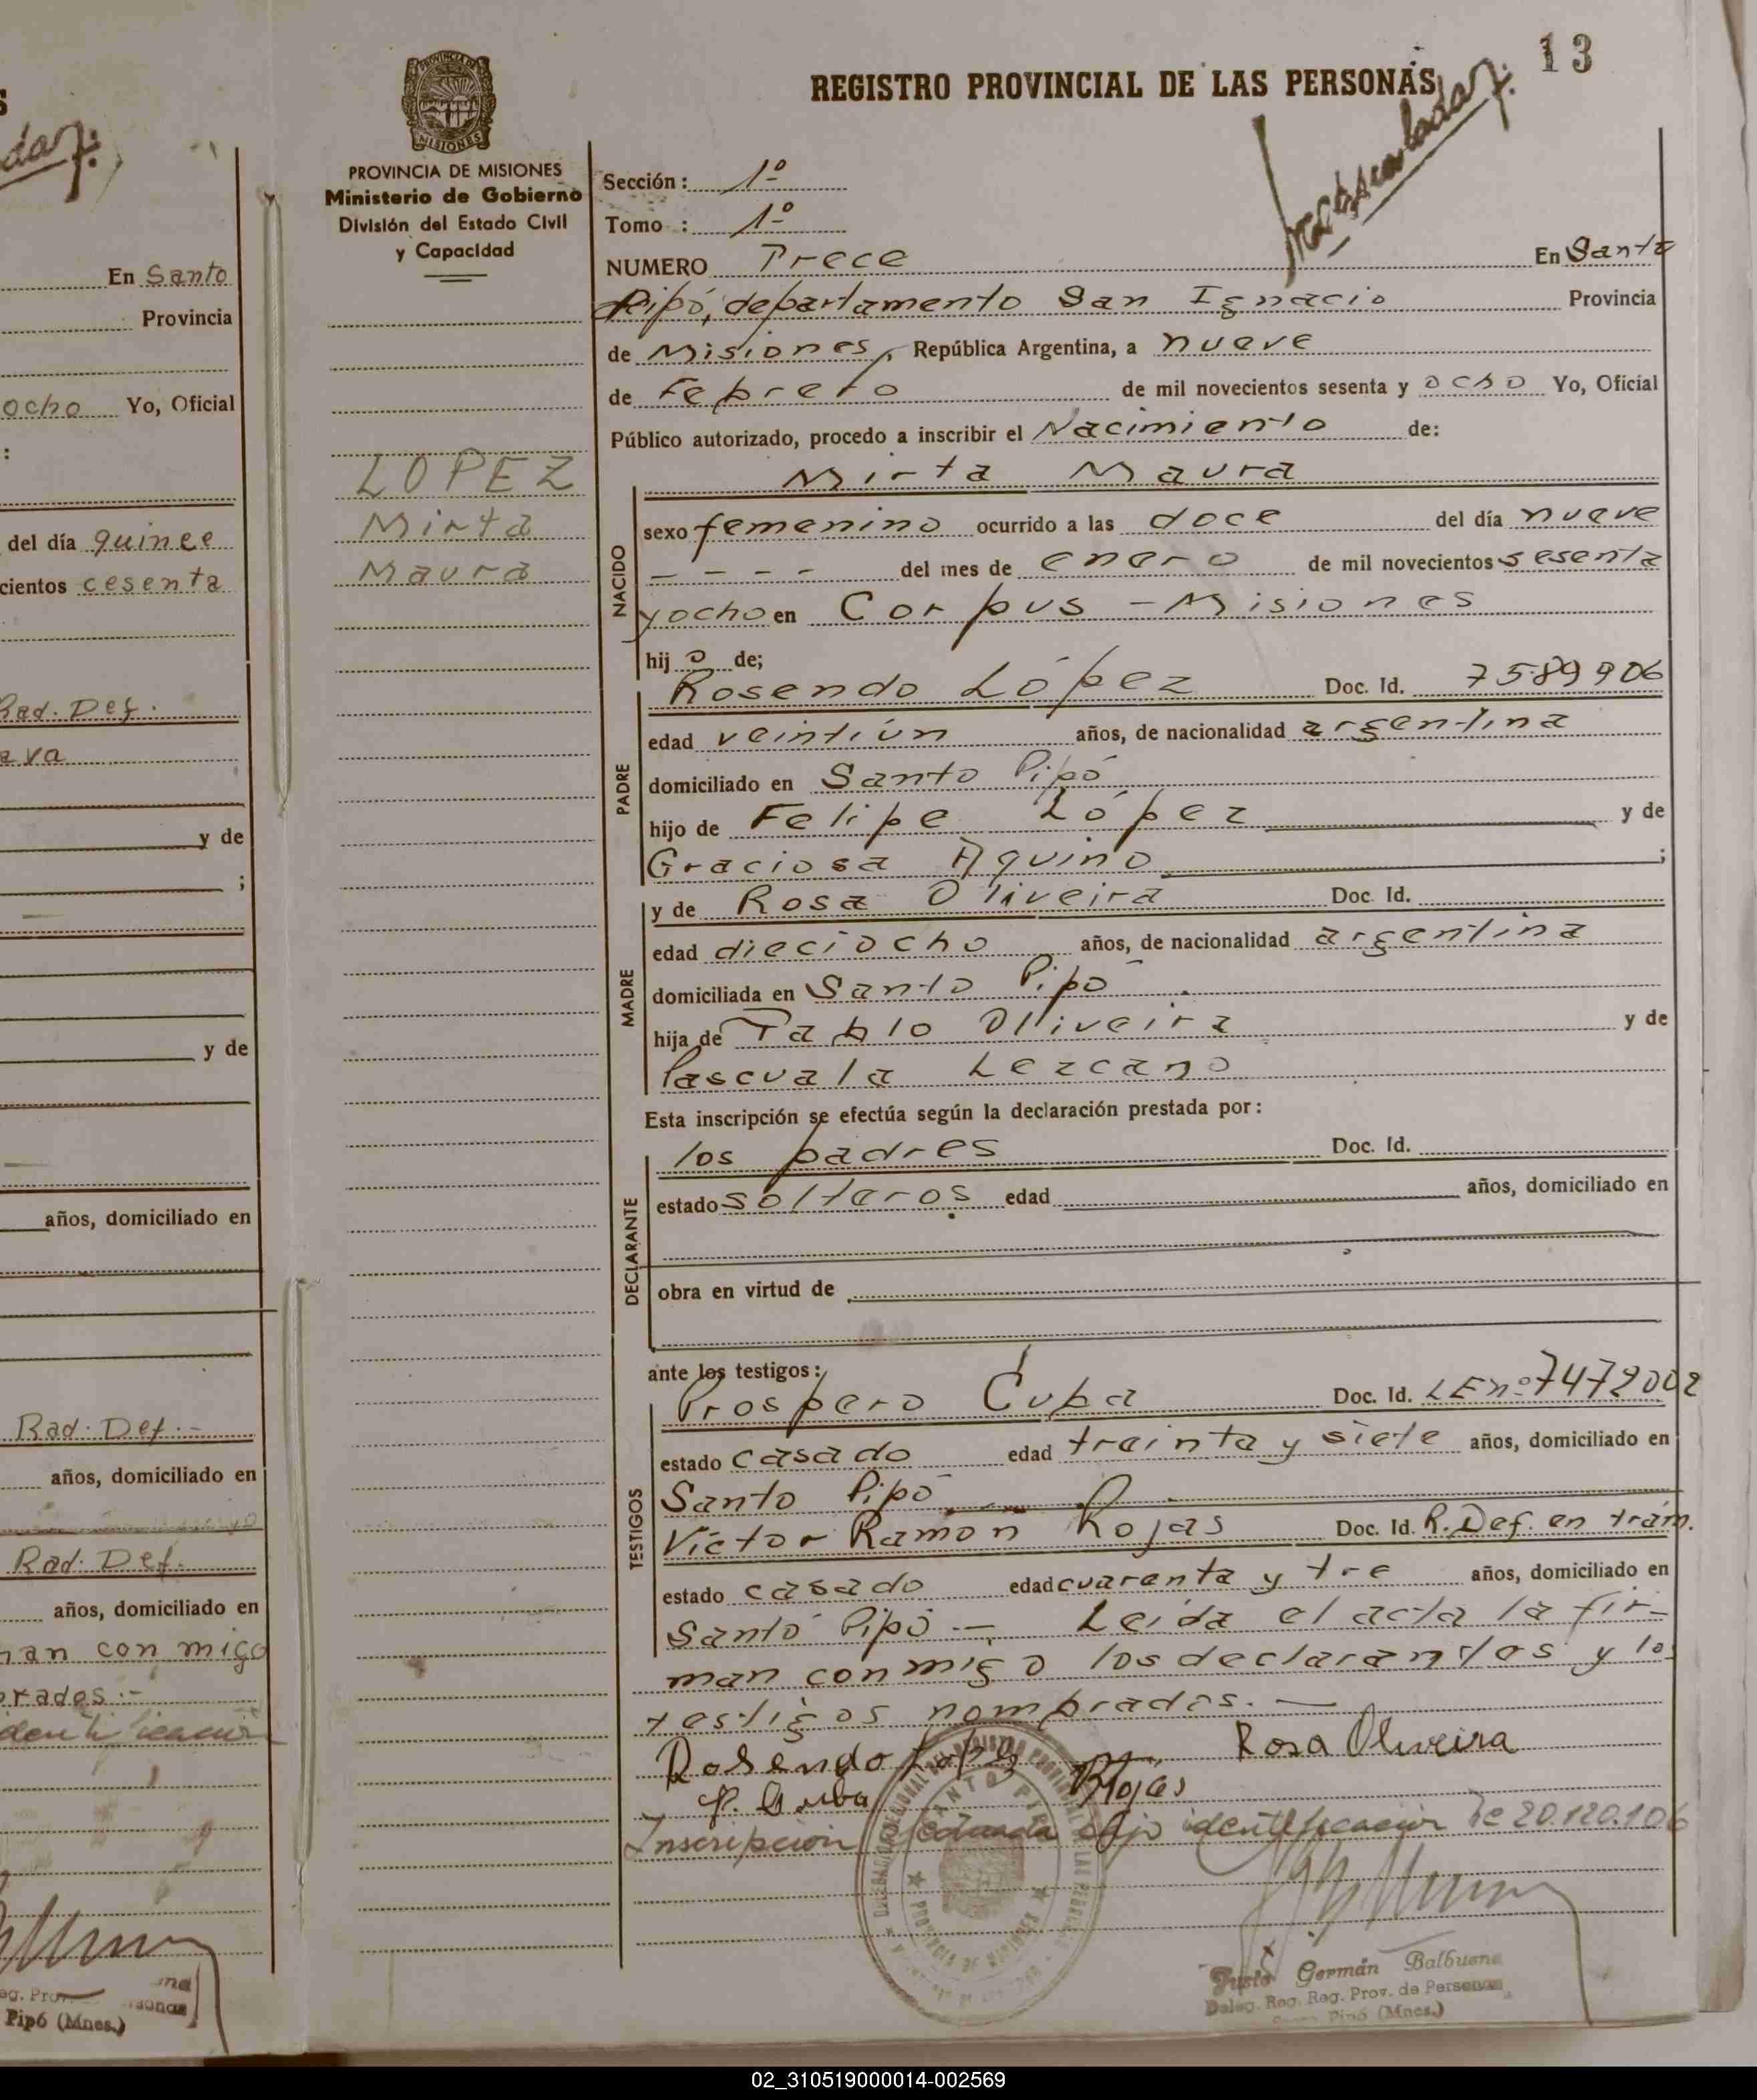 13
REGISTRO PROVINCIAL DE LAS PERSONAS
PROVINCIA DE MISIONES
Ministerio de Gobierno
División del Estado Civil
y Capacidad
LOPEZ
Mirta
Maura
Sección: 1º
Tomo: 1º
NUMERO Trece En Santo
Pipó, departamento San Ignacio Provincia
de Misiones, República Argentina, a nueve
de Febrero de mil novecientos sesenta y ocho Yo, Oficial
Público autorizado, procedo a inscribir el Nacimiento de:
Mirta Maura
NACIDO
sexo femenino ocurrido a las doce del día nueve
- - - - del mes de enero de mil novecientos sesenta
y ocho en Corpus - Misiones
hij a de;
PADRE
Rosendo López Doc. Id. 7589906
edad veintiún años, de nacionalidad argentina
domiciliado en Santo Pipó
hijo de Felipe López y de
Graciosa Aquino ;
MADRE
y de Rosa Oliveira Doc. Id.
edad dieciocho años, de nacionalidad argentina
domiciliada en Santo Pipó
hija de Pablo Oliveira y de
Pascuala Lezcano
Esta inscripción se efectúa según la declaración prestada por:
DECLARANTE
los padres Doc. Id.
estado solteros edad años, domiciliado en
obra en virtud de
ante los testigos:
TESTIGOS
Prospero Cuba Doc. Id. LE nº 7472002
estado casado edad treinta y siete años, domiciliado en
Santo Pipó
Víctor Ramón Rojas Doc. Id. R. Def. en trám.
estado casado edad cuarenta y tre años, domiciliado en
Santo Pipó - Leída el acta la fir-
man conmigo los declarantes y los
testigos nombrados. -
Rosendo Lopez Rosa Oliveira
P. Cuba Rojas
Inscripción efectuada bajo identificación de 20.120.106
SANTO PIPO
PROVINCIA DE MISIONES
Justo Germán Balbuena
Deleg. Reg. Reg. Prov. de Personas
Santo Pipó (Mnes.)
En Santo
Provincia
ocho Yo, Oficial
:
del día quince
cientos cesenta
Rad. Def.
ava
y de
;
y de
años, domiciliado en
Rad. Def. -
años, domiciliado en
Rad. Def.
años, domiciliado en
man con migo
brados. -
identificación
Pipó (Mnes.)
02_310519000014-002569